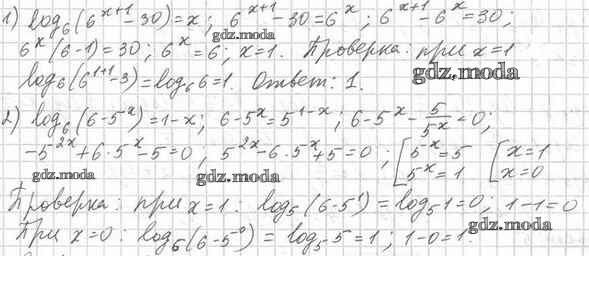 1) log₆(6ˣ⁺¹-30)=x; 6ˣ⁺¹-30=6ˣ; 6ˣ⁺¹-6ˣ=30;
gdz.moda
6ˣ(6-1)=30; 6ˣ=6; x=1. Проверка: при x=1
gdz.moda
log₆(6¹⁺¹-3)=log₆6=1. Ответ: 1.
2) log₆(6-5ˣ)=1-x; 6-5ˣ=5¹⁻ˣ; 6-5ˣ-5/5ˣ=0;
-5²ˣ+6·5ˣ-5=0; 5²ˣ-6·5ˣ+5=0; [5ˣ=5 [x=1
5ˣ=1 x=0
gdz.moda gdz.moda
Проверка: при x=1: log₅(6-5¹)=log₅1=0; 1-1=0
gdz.moda
При x=0: log₅(6-5⁰)=log₅5=1; 1-0=1.